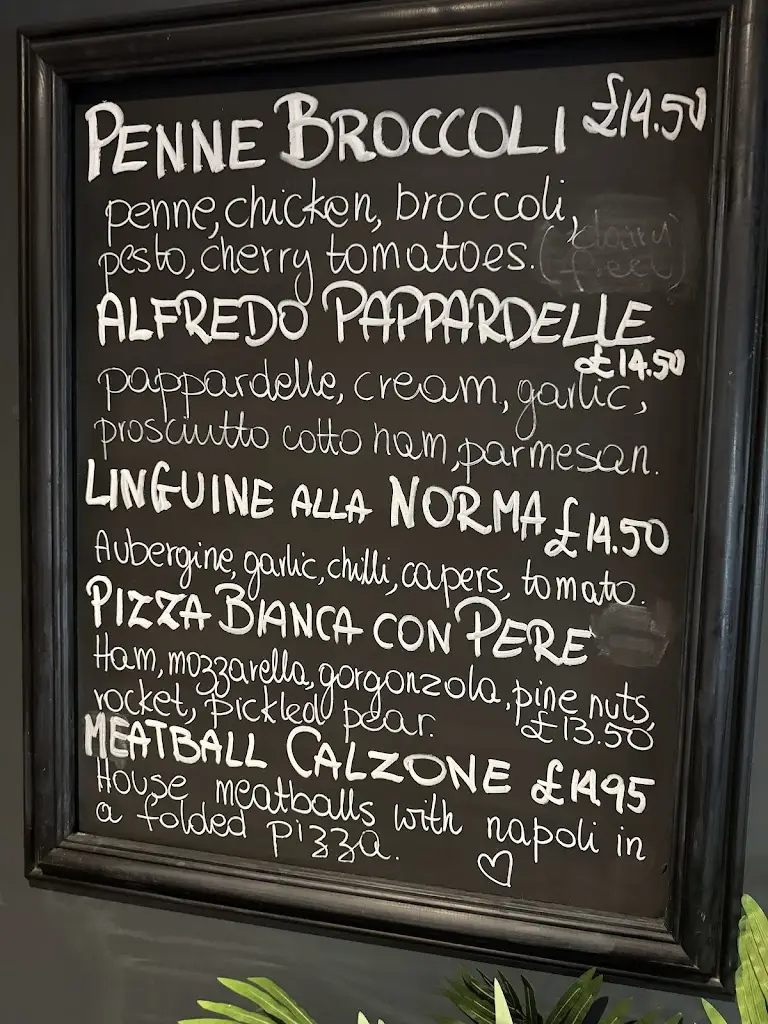 PENNE BROCCOLI £14.50
penne, chicken, broccoli,
pesto, cherry tomatoes. (dairy
free)
ALFREDO PAPPARDELLE
£14.50
pappardelle, cream, garlic,
prosciutto cotto ham, parmesan.
LINGUINE ALLA NORMA £14.50
Aubergine, garlic, chilli, capers, tomato.
PIZZA BIANCA CON PERE
Ham, mozzarella, gorgonzola, pine nuts,
rocket, pickled pear. £13.50
MEATBALL CALZONE £14.95
House meatballs with napoli in
a folded pizza.